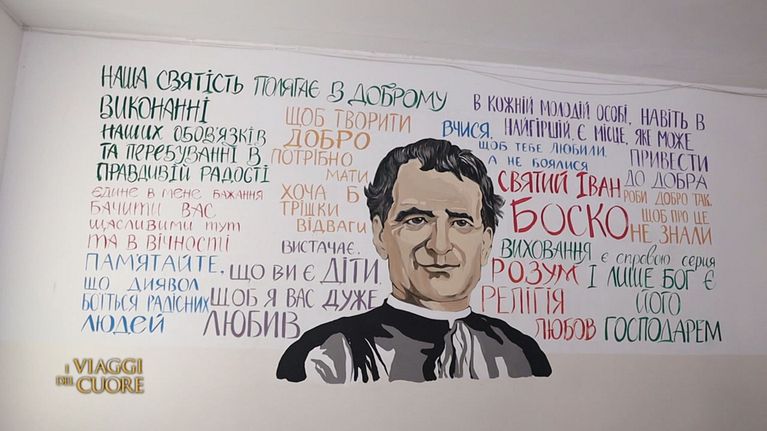 НАША СВЯТІСТЬ ПОЛЯГАЄ В ДОБРОМУ
ВИКОНАННІ
НАШИХ ОБОВ'ЯЗКІВ
ТА ПЕРЕБУВАННІ В
ПРАВДИВІЙ РАДОСТІ
ЄДИНЕ В МЕНЕ БАЖАННЯ
БАЧИТИ ВАС
ЩАСЛИВИМИ ТУТ
ТА В ВІЧНОСТІ
ПАМЯТАЙТЕ,
ЩО ДИЯВОЛ
БОЇТЬСЯ РАДІСНИХ
ЛЮДЕЙ
ЩОБ ТВОРИТИ
ДОБРО
ПОТРІБНО
МАТИ
ХОЧА Б
ТРІШКИ
ВІДВАГИ
ВИСТАЧАЄ,
ЩО ВИ Є ДІТИ,
ЩОБ Я ВАС ДУЖЕ
ЛЮБИВ
В КОЖНІЙ МОЛОДІЙ ОСОБІ, НАВІТЬ В
НАЙГІРШІЙ, Є МІСЦЕ, ЯКЕ МОЖЕ
ПРИВЕСТИ
ДО ДОБРА
ВЧИСЯ,
ЩОБ ТЕБЕ ЛЮБИЛИ,
А НЕ БОЯЛИСЯ
СВЯТИЙ ІВАН
БОСКО
РОБИ ДОБРО ТАК,
ЩОБ ПРО ЦЕ
НЕ ЗНАЛИ
ВИХОВАННЯ Є СПРАВОЮ СЕРЦЯ
І ЛИШЕ БОГ Є
ЙОГО
ГОСПОДАРЕМ
РОЗУМ
РЕЛІГІЯ
ЛЮБОВ
I VIAGGI
DEL CUORE